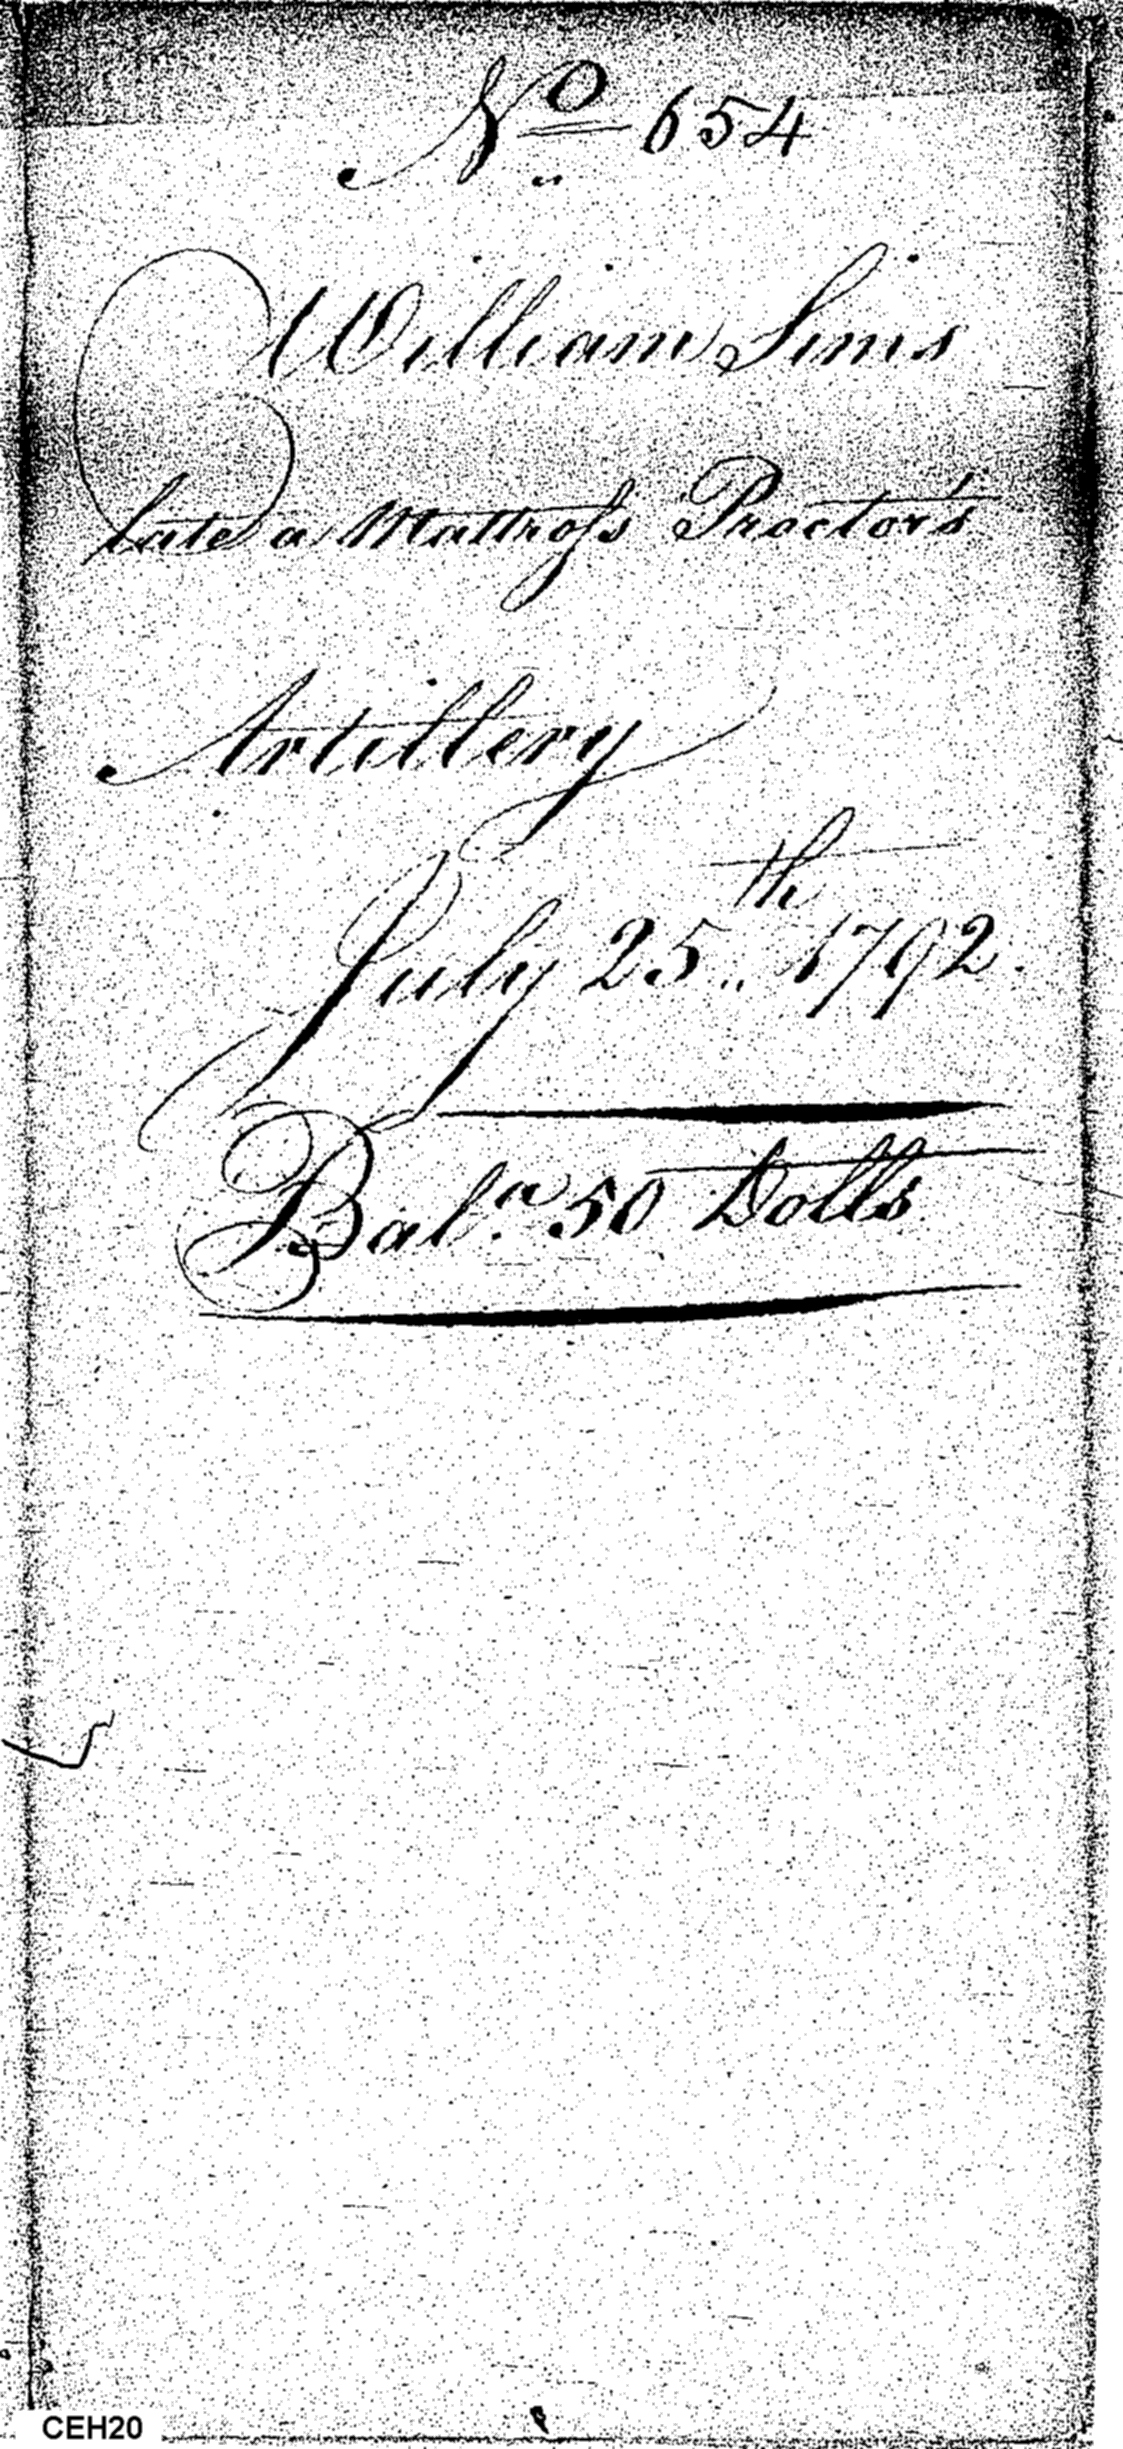 No 654
William Sims
late a Mattross Proctor's
Artillery
July 25th 1792.
Bala 50 Dolls
CEH20